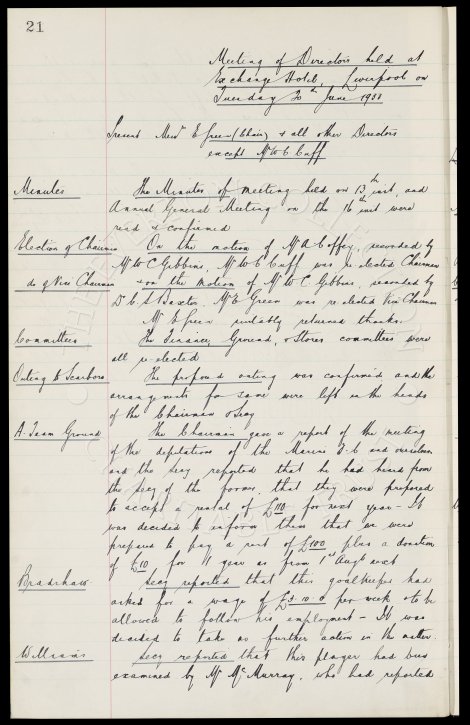 21
Meeting of Directors held at
Exchange Hotel, Liverpool on
Tuesday 20th June 1933
Present Messrs E Green (Chair) & all other Directors
except Mr W C Cuff
Minutes The Minutes of meeting held on 13th inst, and
Annual General Meeting on the 16th inst were
read & confirmed
Election of Chairman On the motion of Mr A Coffey, seconded by
Mr W C Gibbins, Mr W C Cuff was re-elected Chairman
do of Vice Chairman & on the motion of Mr W C Gibbins, seconded by
Dr C S Baxter, Mr E Green was re-elected Vice Chairman
Mr E Green suitably returned thanks.
Committees The Finance, Ground, & Stores committees were
all re-elected
Outing to Scarboro The proposed outing was confirmed and the
arrangements for same were left in the hands
of the Chairman & Secy
A. Team Ground The Chairman gave a report of the meeting
of the deputations of the Marine F.C and ourselves
and the Secy reported that he had heard from
the Secy of the former, that they were prepared
to accept a rental of £110 for next year - It
was decided to inform them that we were
prepared to pay a rent of £100 plus a donation
of £10 for 1 year as from 1st Augt next
Bradshaw Secy reported that this goalkeeper had
asked for a wage of £3-10-0 per week & to be
allowed to follow his employment - It was
decided to take no further action in the matter.
Williams Secy reported that this player had been
examined by Mr McMurray, who had reported